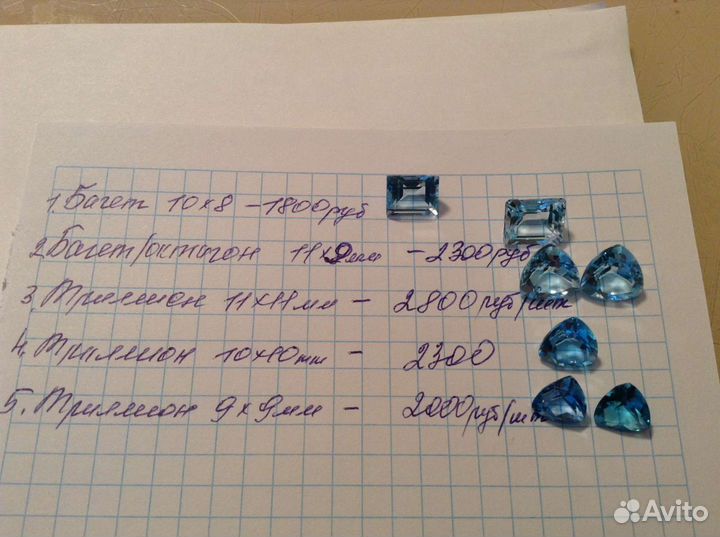 1. Багет 10х8 - 1800руб
2. Багет/октагон 11х9мм - 2300руб
3. Триллион 11х11мм - 2800руб/шт
4. Триллион 10х10мм - 2300
5. Триллион 9х9мм - 2000руб/шт
Avito